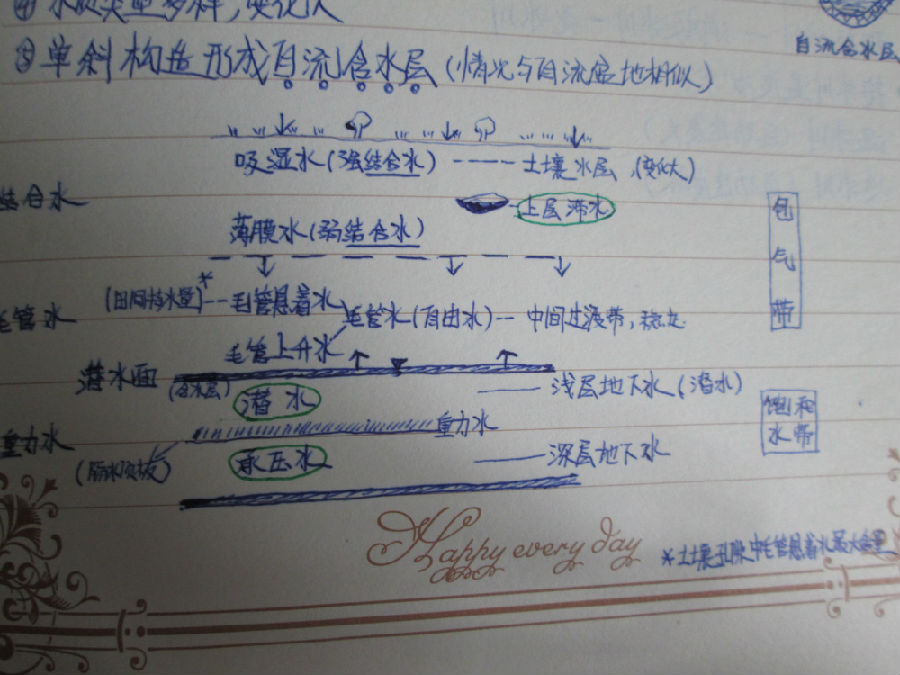 ④水质类型多样,变化大
自流含水层
⑤单斜构造形成自流含水层(情况与自流盆地相似)
吸湿水(强结合水)----土壤水层(变化大)
结合水
上层滞水
包气带
薄膜水(弱结合水)
(田间持水量)*--毛管悬着水
毛管水
毛管水(自由水)--中间过渡带,稳定
毛管上升水
潜水面
(含水层)
潜水
浅层地下水(潜水)
饱和水带
重力水
重力水
(隔水顶板)
承压水
深层地下水
Happy every day
*土壤孔隙中毛管悬着水最大含量